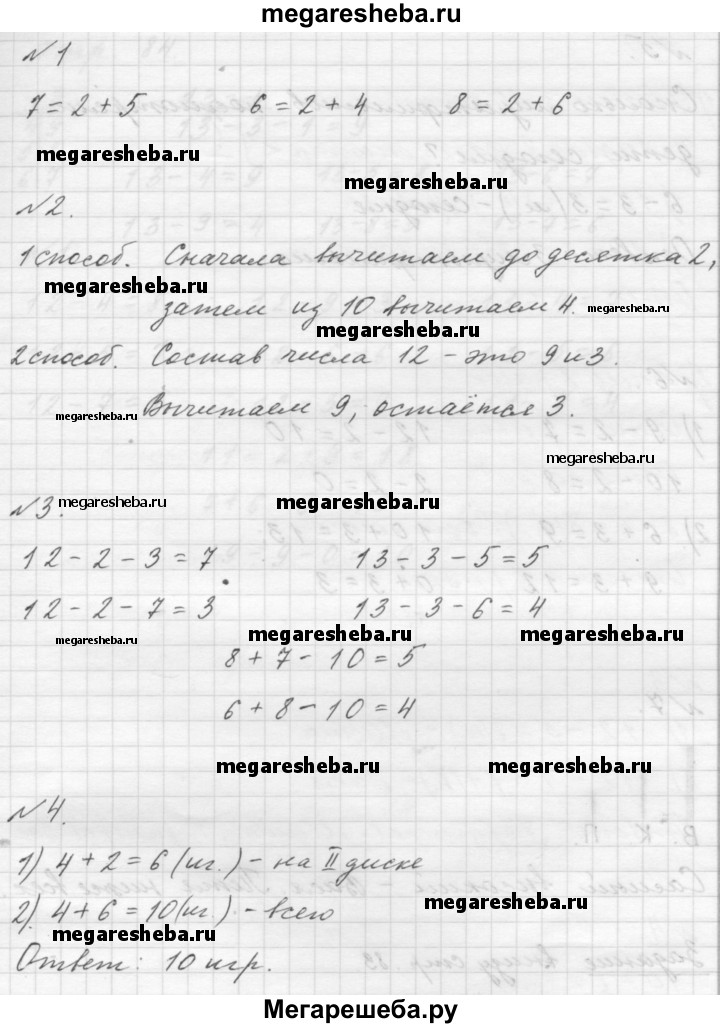 megaresheba.ru
№1
7=2+5 6=2+4 8=2+6
megaresheba.ru
megaresheba.ru
№2.
1 способ. Сначала вычитаем до десятка 2,
megaresheba.ru
затем из 10 вычитаем 4. megaresheba.ru
megaresheba.ru
2 способ. Состав числа 12 - это 9 и 3.
megaresheba.ru Вычитаем 9, остаётся 3.
megaresheba.ru
№3. megaresheba.ru megaresheba.ru
12-2-3=7 13-3-5=5
12-2-7=3 13-3-6=4
megaresheba.ru megaresheba.ru megaresheba.ru
8+7-10=5
6+8-10=4
megaresheba.ru megaresheba.ru
№4.
1) 4+2=6 (иг.) - на II диске
2) 4+6=10 (иг.) - всего
megaresheba.ru
megaresheba.ru
Ответ: 10 игр.
Мегарешеба.ру